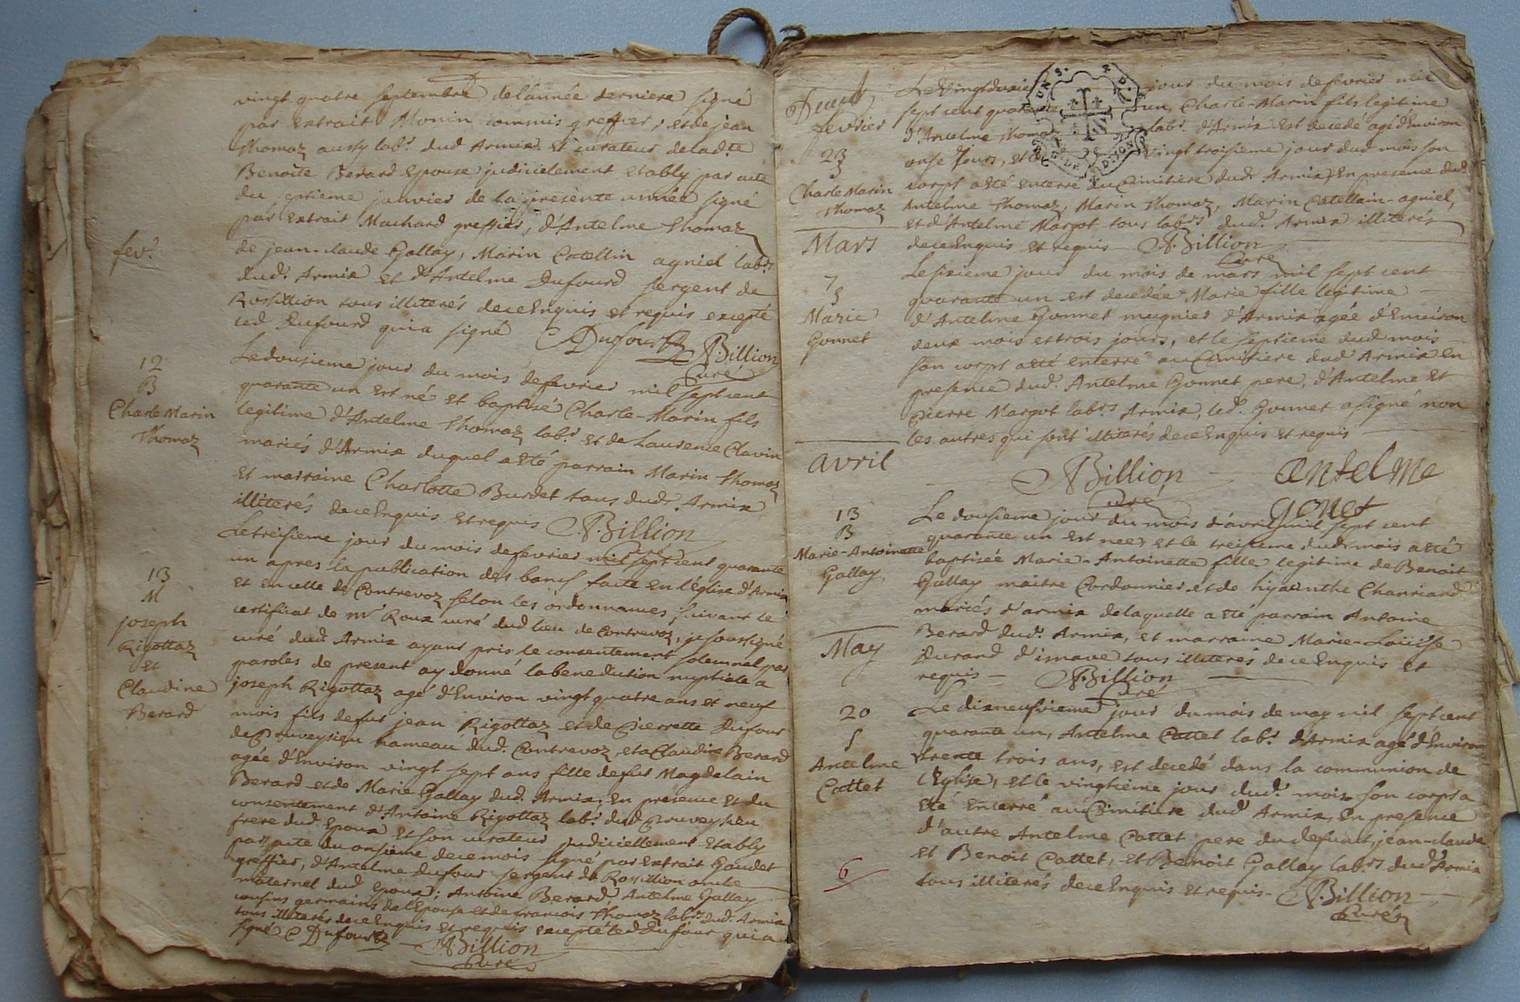 vingt quatre septembre de l'année derniere signé
par extrait Monin commis greffier, et de jean
Thomaz aussy lab.r dud Armix et curateur de lad.te
Benoite Berard Epouse judiciellement etably par acte
du janvier de la presente année signé
par extrait Machard greffier, d'Antelme Thomaz
fev.r
de jean-claude Gallay, Marin Catellin agniel lab.rs
dud. Armix et d'Antelme Dufourd sergent de
Rossillion tous illiterés de ce Enquis et requis excepté
led Dufourd qui a signé Dufourd Billion
Curé
12
B
Charle Marin
Thomaz
Le dousieme jour du mois de fevrier mil sept cent
quarante un est né et baptisé Charle-Marin fils
legitime d'Antelme Thomaz lab.r et de Laurence Clavin
mariés d'Armix duquel a eté parrain Marin Thomaz
et marraine Charlotte Burdet tous dud. Armix
illiterés de ce Enquis et requis Billion
13
M
joseph
Rigottaz
et
Claudine
Berard
Le treisieme jour du mois de fevrier mil sept cent quarante
un apres la publication des bancs faite en l'église d'Armix
et en celle de Contrevoz selon les ordonnances, suivant le
certificat de m.r Roux curé dud lieu de Contrevoz, je soussigné
curé dud Armix ayant pris le consentement solemnel par
paroles de present ay donné la benediction nuptiale a
joseph Rigottaz agé d'Environ vingt quatre ans et neuf
mois fils de fut jean Rigottaz et de Pierrette Dufour
de Pruveysieu hameau dud. Contrevoz, et a Claudine Berard
agée d'Environ vingt sept ans fille de fut Magdelain
Berard et de Marie Gallay dud. Armix; En presence et du
consentement d'Antoine Rigottaz lab.r dud Pruveysieu
frere dud. Epoux et son curateur judiciellement Etably
par acte du onsieme de ce mois signé par extrait Gaudet
greffier, d'Antelme Dufour sergent de Rossillion oncle
maternel dud epoux; Antoine Berard, Antelme Gallay
cousins germains de l'Epouse et de francois Thomaz lab.rs dud. Armix
tous illiterés de ce Enquis et requis excepté led Dufour qui a
signé Dufourd Billion
Curé
Decest
fevrier
23
S
Charle Marin
Thomaz
Le Vingt jour du mois de fevrier mil
sept cent quarante un, Charle-Marin fils legitime
d'Antelme Thomaz lab.r d'Armix est decedé agé d'Environ
onse jours, et le vingt troisieme jour dud mois son
corps a eté enterré au Cimitiere dud. Armix En presence dud
Antelme Thomaz, Marin Thomaz, Marin Catellain-agniel,
et d'Antelme Margot tous lab.rs dud. Armix illiterés
de ce Enquis et requis Billion
Curé
Mars
7
S
Marie
Gonnet
Le sixieme jour du mois de mars mil sept cent
quarante un est decedée Marie fille legitime
d'Antelme Gonnet meugnier d'Armix agée d'Environ
deux mois et trois jours, et le septieme dud mois
son corps a eté enterré au Cimitiere dud Armix En
presence dud. Antelme Gonnet pere, d'Antelme et
Pierre Margot lab.rs Armix, led. Gonnet a signé non
les autres qui sont illiterés de ce Enquis et requis
Billion antelme
Curé gonet
avril
13
B
Marie-Antoinette
Gallay
Le dousieme jour du mois d'avril mil sept cent
quarante un est nee et le treisieme dud. mois a eté
baptisée Marie-Antoinette fille legitime de Benoit
Gallay maitre Cordonnier et de hyacinthe
mariés d'armix de laquelle a eté parrain Antoine
Berard dud. Armix, et marraine Marie-Louise
Durand d'imave tous illiterés de ce Enquis et
requis Billion
Curé
May
20
S
Antelme
Cattet
Le dixneufvieme jour du mois de may mil sept cent
quarante un, Antelme Cattet lab.r d'Armix agé d'Environ
trente trois ans, est decedé dans la communion de
l'Eglise, et le vingtieme jour dud. mois son corps a
eté Enterré au Cimitiere dud Armix, En presence
d'autre Antelme Cattet pere du defunt, jean-claude
et Benoit Cattet, et Benoit Gallay lab.rs dud Armix
tous illiterés de ce Enquis et requis Billion
Curé
6